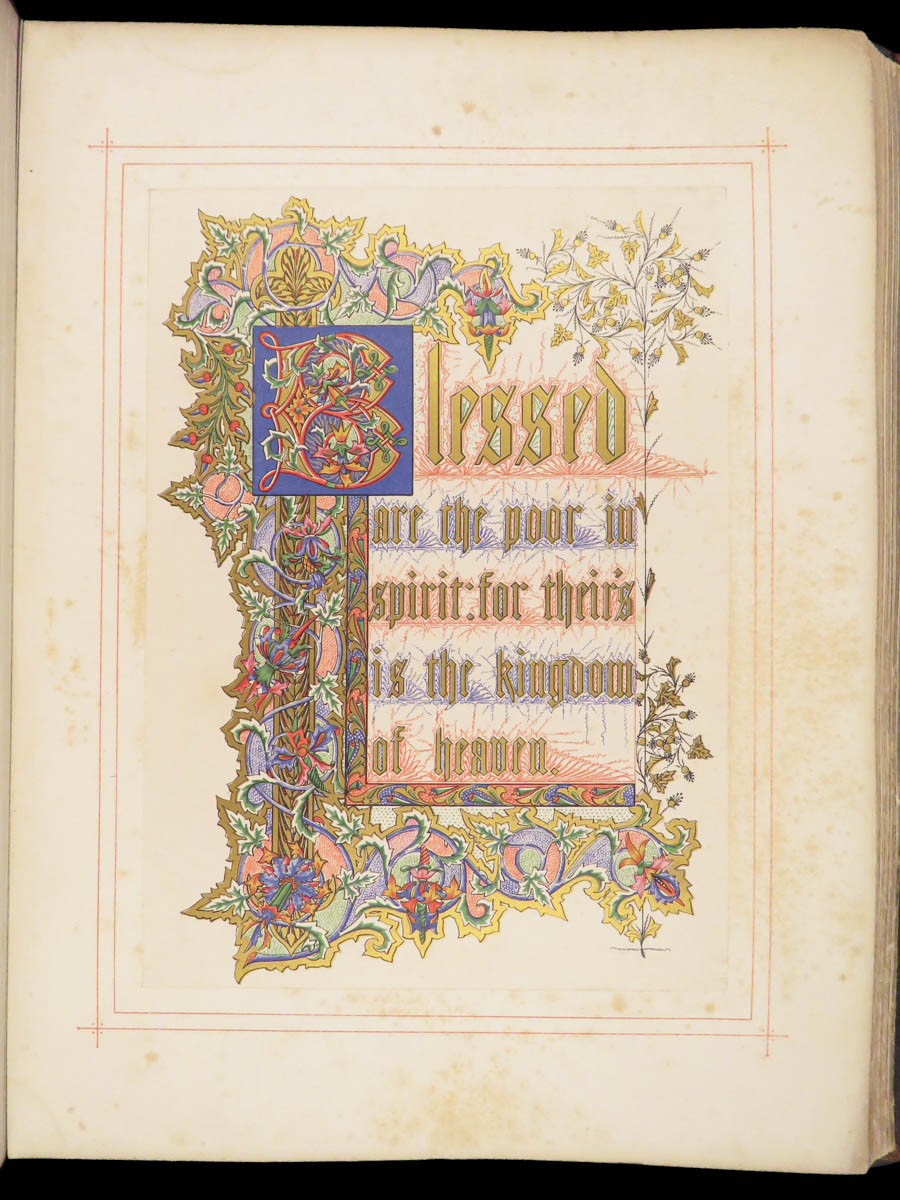 Blessed
are the poor in
spirit: for their's
is the kingdom
of heaven.